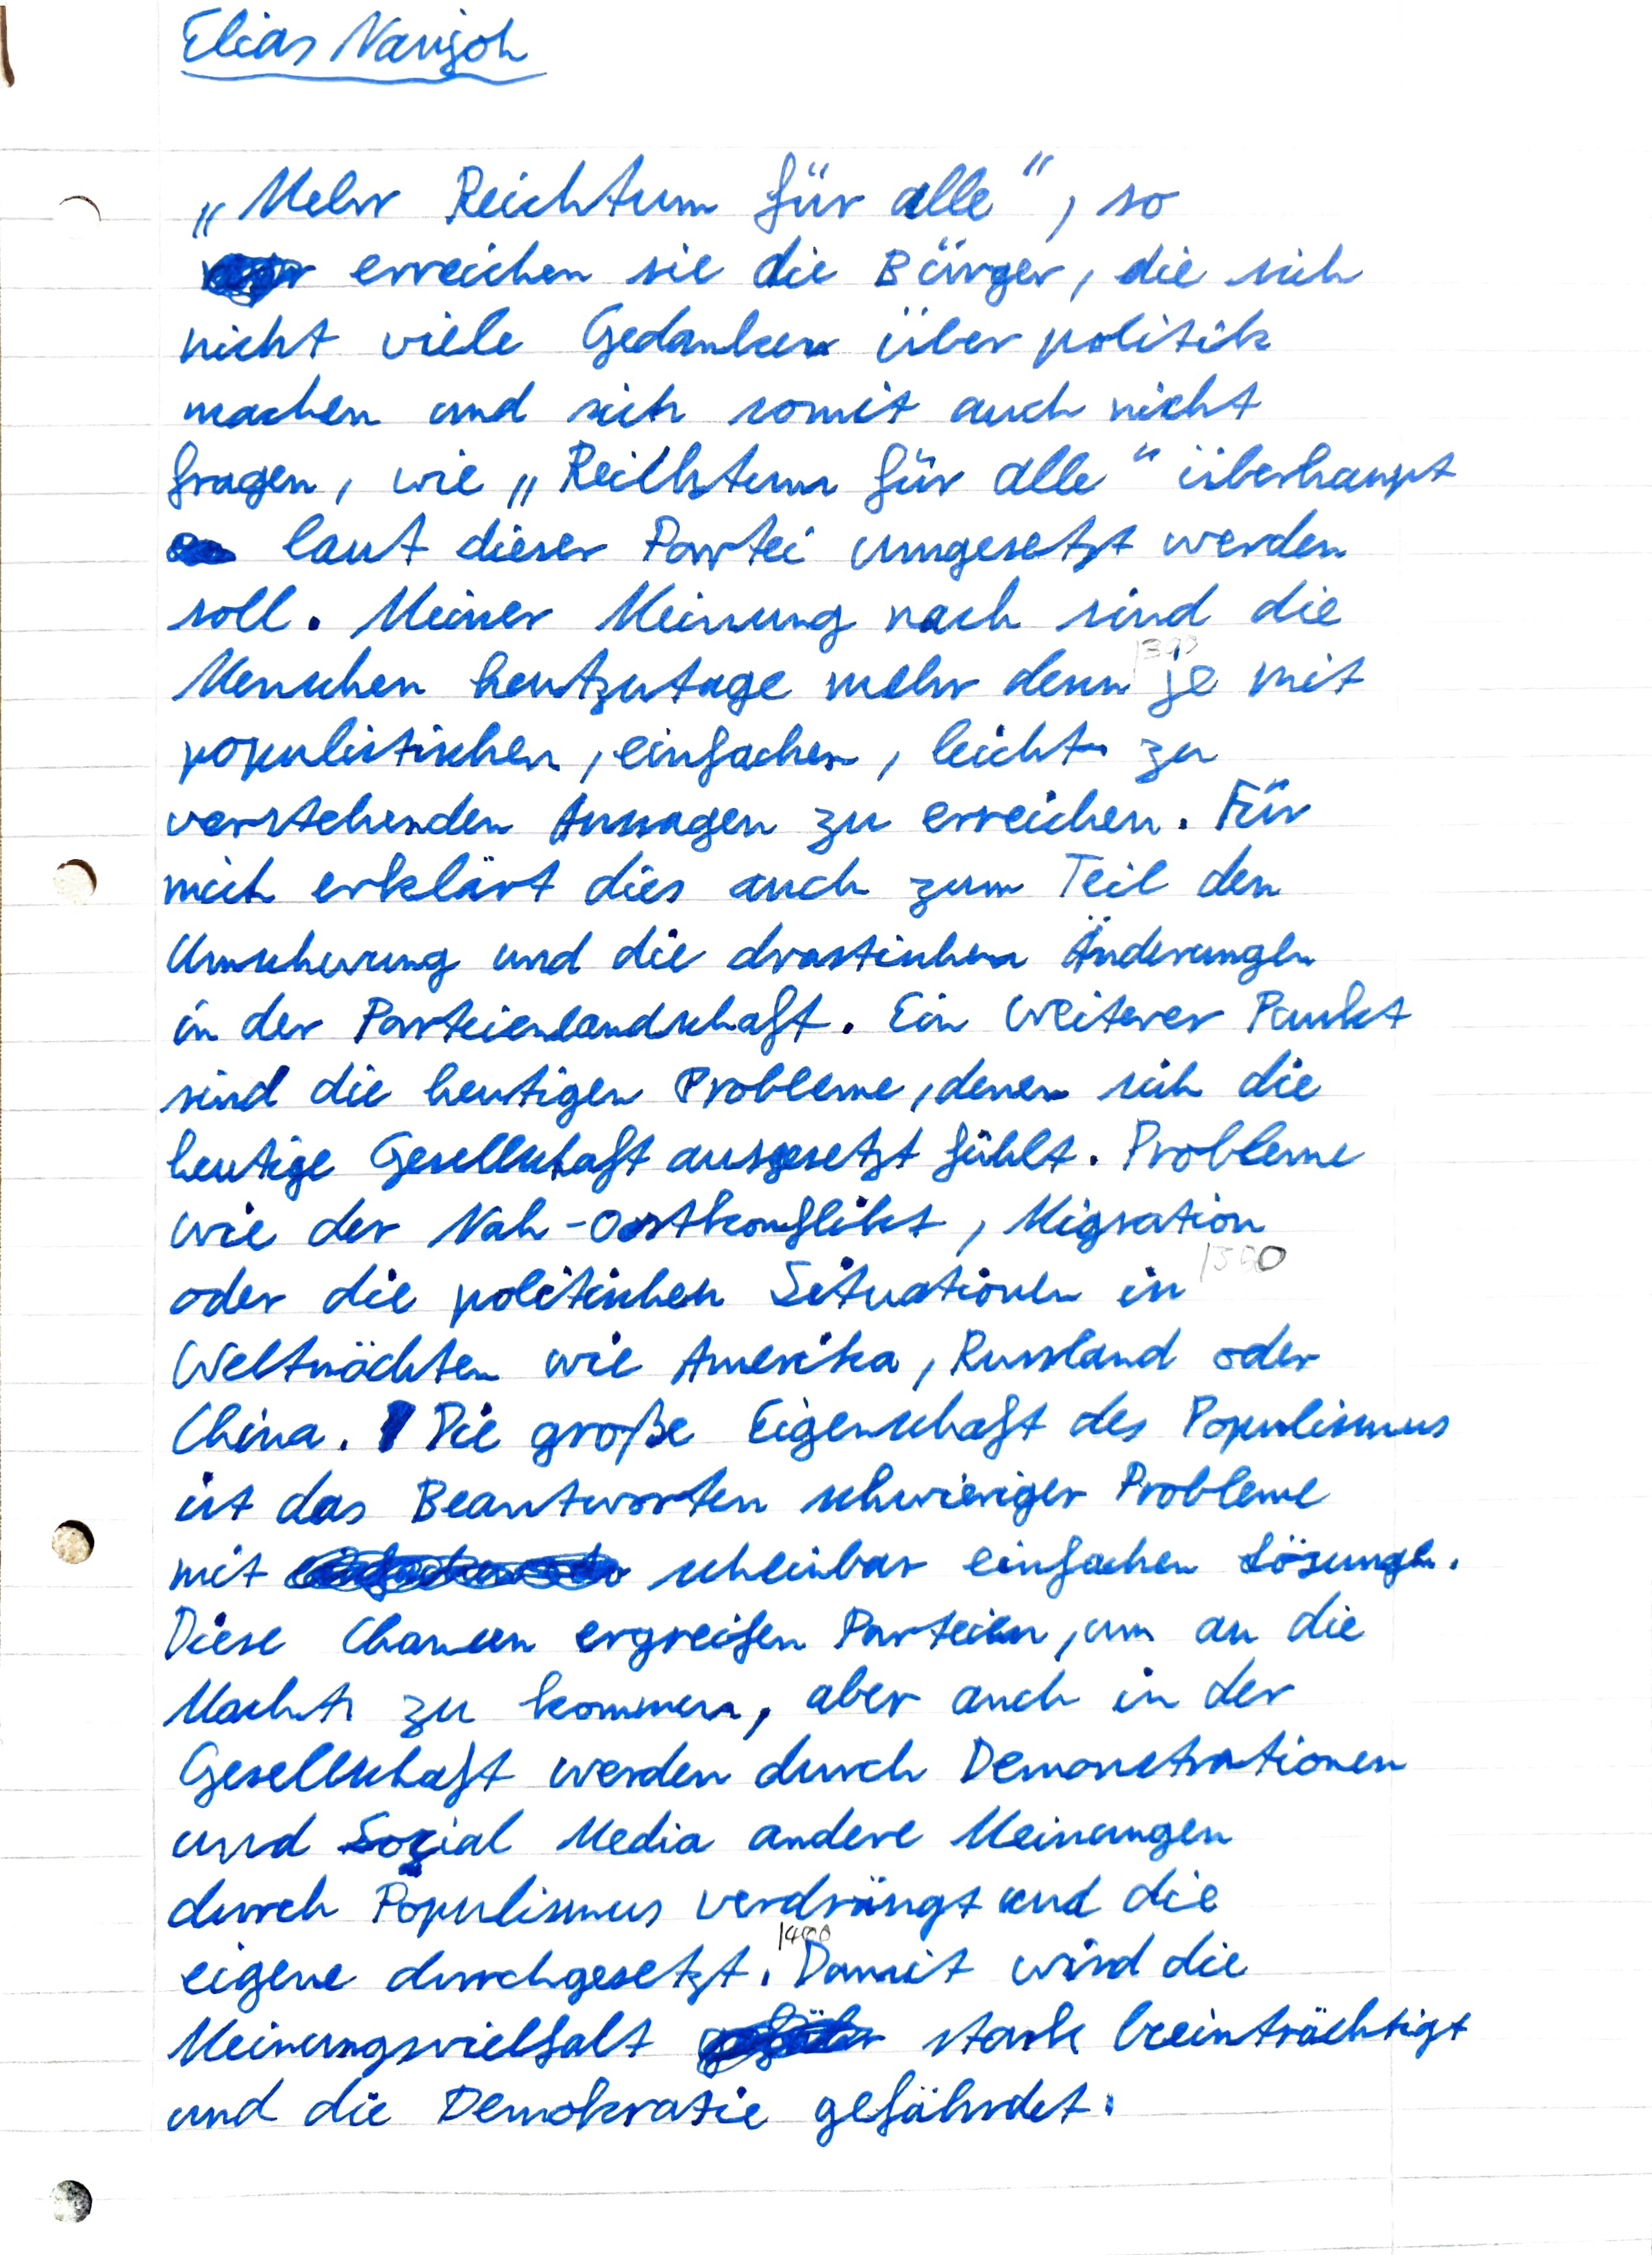 Elias
„Mehr Reichtum für alle“, so
erreichen sie die Bürger, die sich
nicht viele Gedanken über politik
machen und sich somit auch nicht
fragen, wie „Reichtum für alle“ überhaupt
laut dieser Partei umgesetzt werden
soll. Meiner Meinung nach sind die
1300
Menschen heutzutage mehr denn je mit
populistischen, einfachen, leicht zu
verstehenden Aussagen zu erreichen. Für
mich erklärt dies auch zum Teil den
und die drastischen Änderungen
in der Parteienlandschaft. Ein weiterer Punkt
sind die heutigen Probleme, denen sich die
heutige Gesellschaft ausgesetzt fühlt. Probleme
wie der Nah-Ostkonflikt, Migration
1350
oder die politischen Situationen in
Weltmächten wie Amerika, Russland oder
China. Die große Eigenschaft des Populismus
ist das Beantworten schwieriger Probleme
mit scheinbar einfachen Lösungen.
Diese Chancen ergreifen Parteien, um an die
Macht zu kommen, aber auch in der
Gesellschaft werden durch Demonstrationen
und Social Media andere Meinungen
durch Populismus verdrängt und die
1400
eigene durchgesetzt. Damit wird die
Meinungsvielfalt stark beeinträchtigt
und die Demokratie gefährdet.